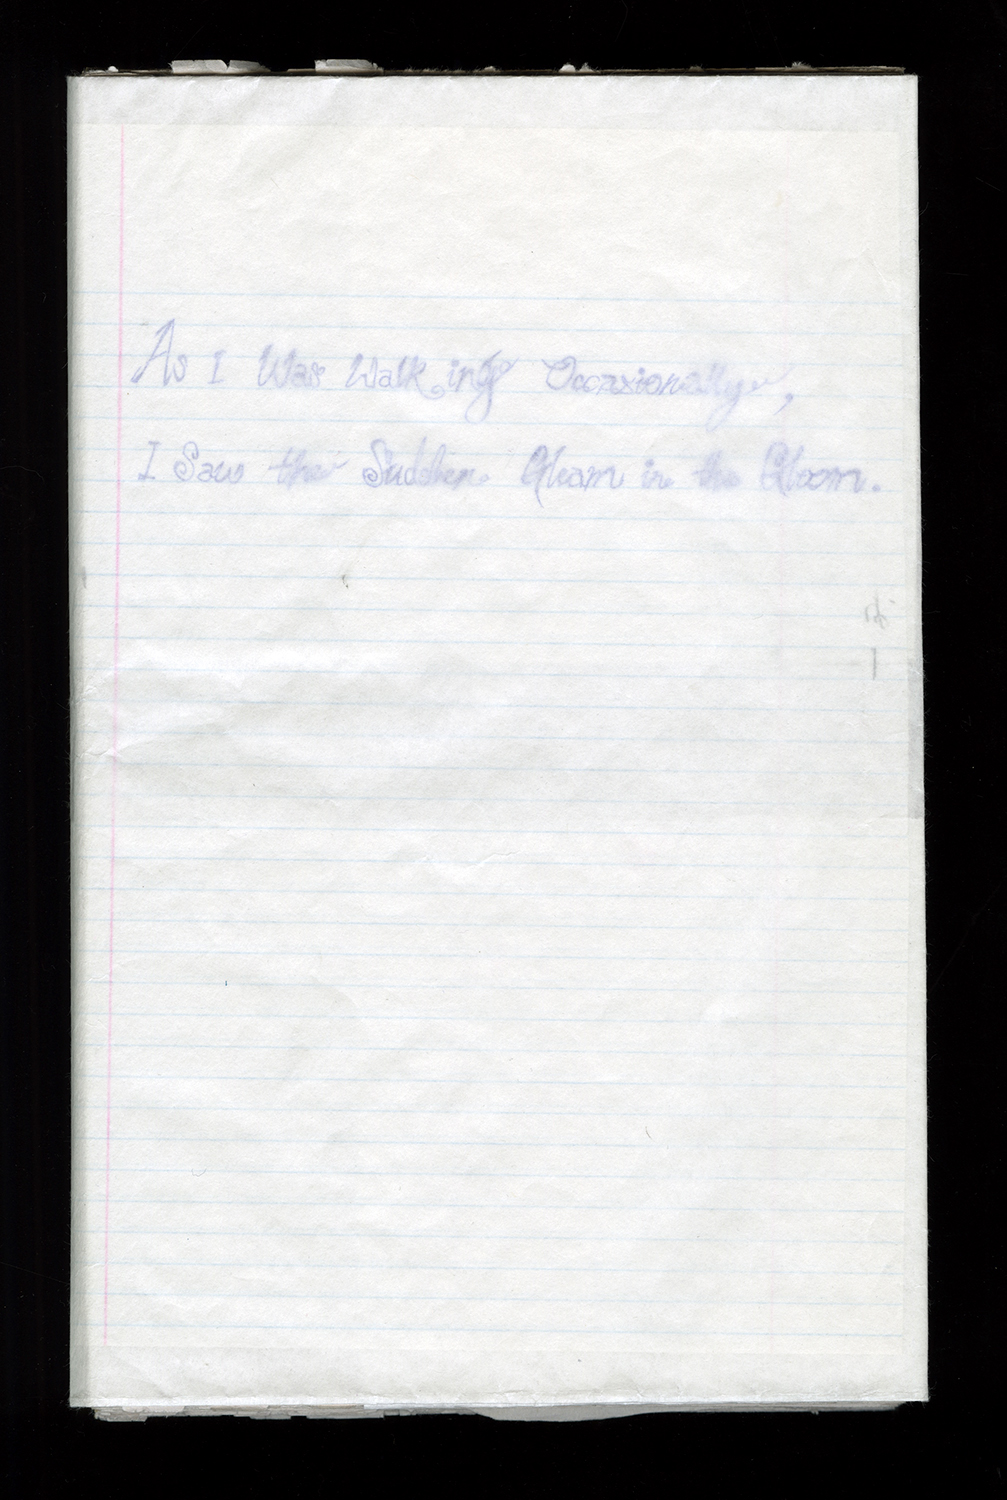 As I Was Walking Occaxionally,
I Saw the Sudden Gleam in the Gloom.